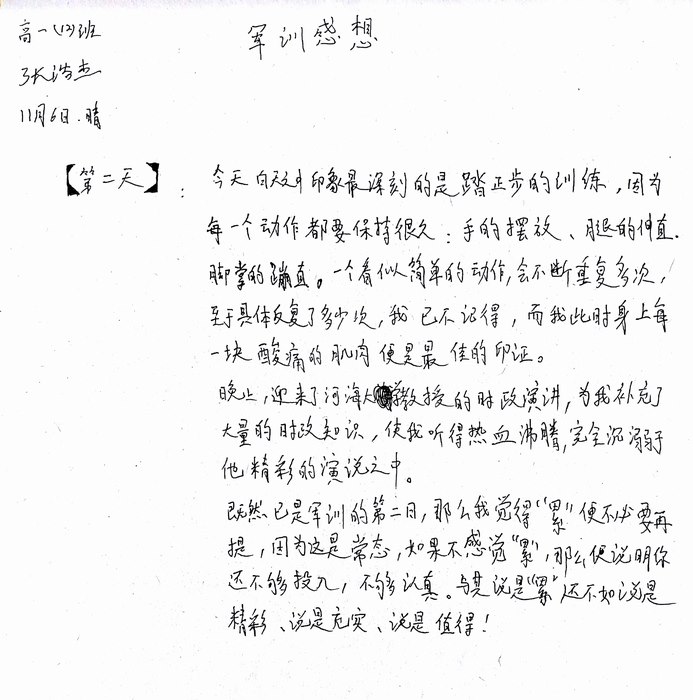 军训感想
高一(12)班
张浩杰
11月6日.晴
【第二天】:
今天白天中印象最深刻的是踏正步的训练,因为
每一个动作都要保持很久:手的摆放、腿的伸直.
脚掌的蹦直。一个看似简单的动作,会不断重复多次,
至于具体反复了多少次,我已不记得,而我此时身上每
一块酸痛的肌肉便是最佳的印证。
晚上,迎来了河海大学教授的时政演讲,为我补充了
大量的时政知识,使我听得热血沸腾,完全沉溺于
他精彩的演说之中。
既然已是军训的第二日,那么我觉得"累"便不必要再
提,因为这是常态,如果不感觉"累",那么便说明你
还不够投入,不够认真。与其说是"累"还不如说是
精彩、说是充实、说是值得!